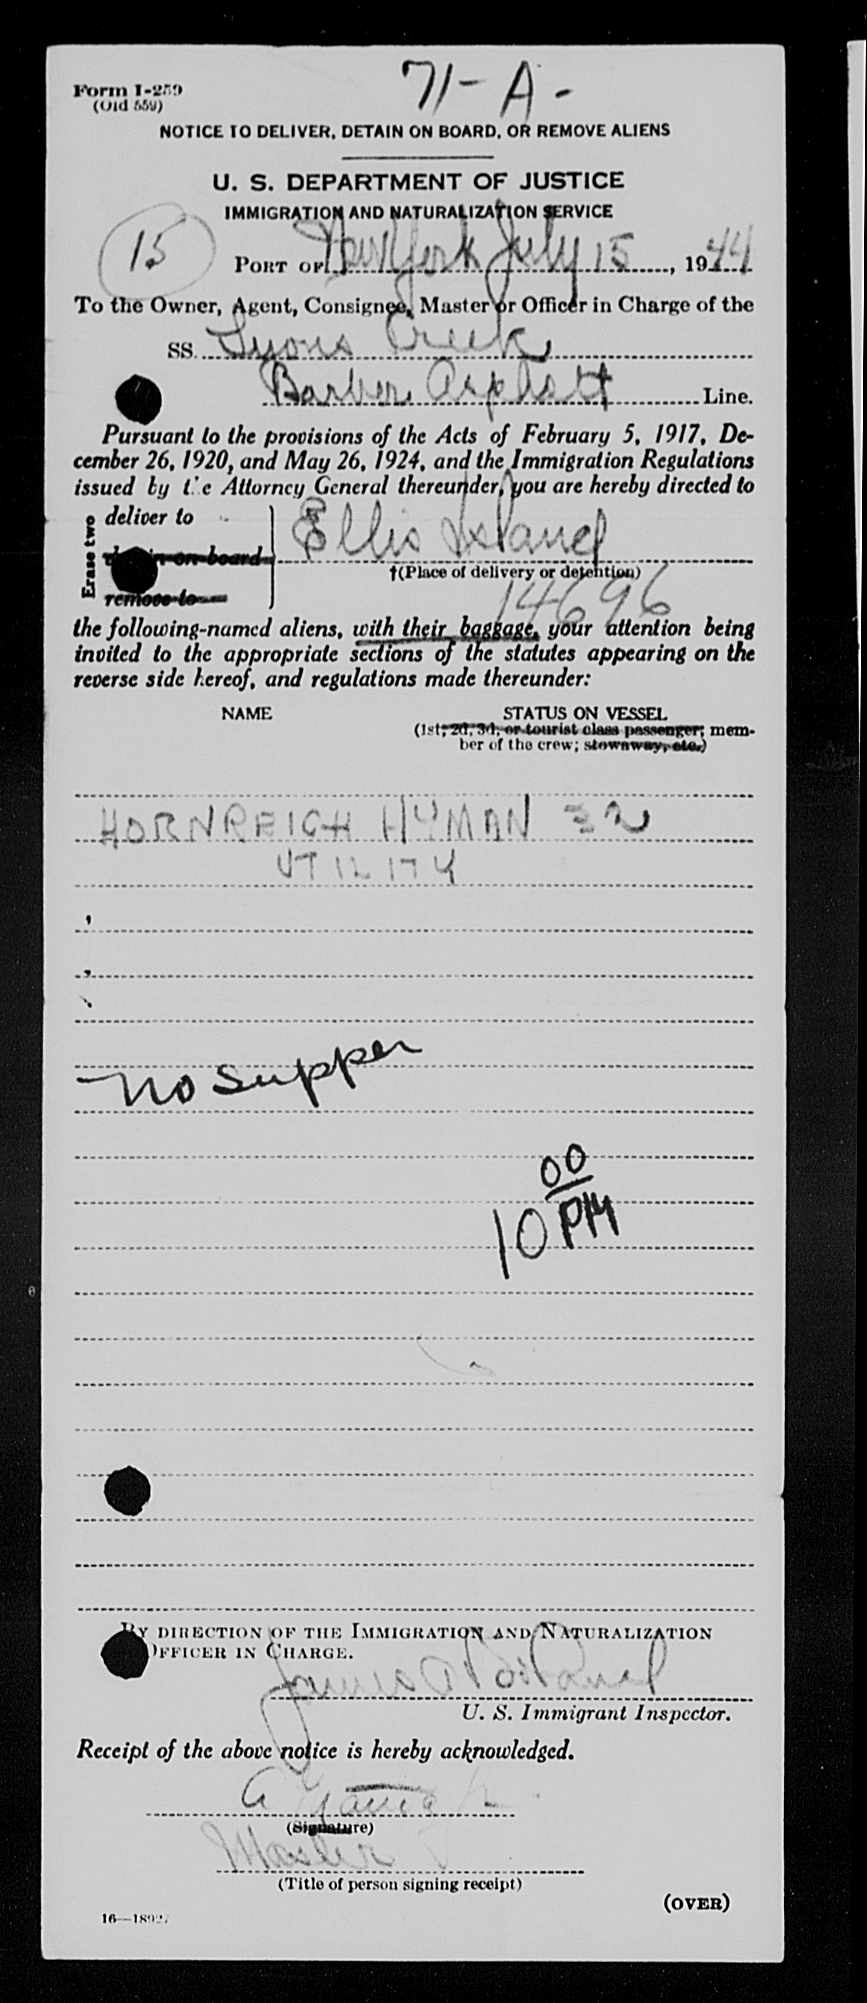 Form I-259
(Old 559)
71-A-
NOTICE TO DELIVER, DETAIN ON BOARD, OR REMOVE ALIENS
U. S. DEPARTMENT OF JUSTICE
IMMIGRATION AND NATURALIZATION SERVICE
15
PORT OF New York July 15, 1944
To the Owner, Agent, Consignee, Master or Officer in Charge of the
SS. Lyons Creek
Barber Asphalt Line.
Pursuant to the provisions of the Acts of February 5, 1917, De-
cember 26, 1920, and May 26, 1924, and the Immigration Regulations
issued by the Attorney General thereunder, you are hereby directed to
Erase two
deliver to
detain on board
remove to
Ellis Island
†(Place of delivery or detention)
14696
the following-named aliens, with their baggage, your attention being
invited to the appropriate sections of the statutes appearing on the
reverse side hereof, and regulations made thereunder:
NAME STATUS ON VESSEL
(1st, 2d, 3d, or tourist class passenger; mem-
ber of the crew; stowaway, etc.)
HORNREICH HYMAN 32
UTILITY
No Supper
10 00 PM
BY DIRECTION OF THE IMMIGRATION AND NATURALIZATION
OFFICER IN CHARGE.
James A
U. S. Immigrant Inspector.
Receipt of the above notice is hereby acknowledged.
(Signature)
Master
(Title of person signing receipt)
(OVER)
16—18927